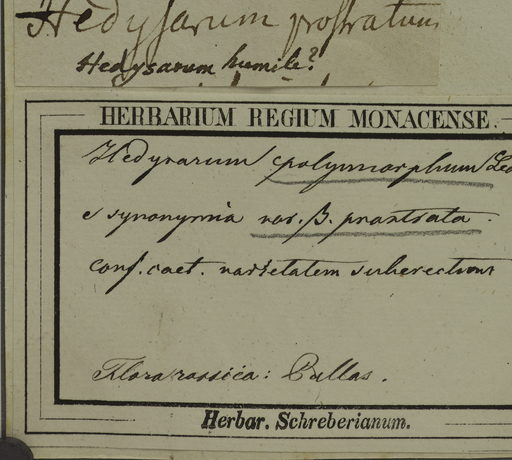 Hedysarum prostratum
Hedysarum humile?
HERBARIUM REGIUM MONACENSE.
Hedysarum polymorphum Led
e synonymia var. β. prostrata.
conf. caet. varietatem suberectum
Flora rossica: Pallas.
Herbar. Schreberianum.